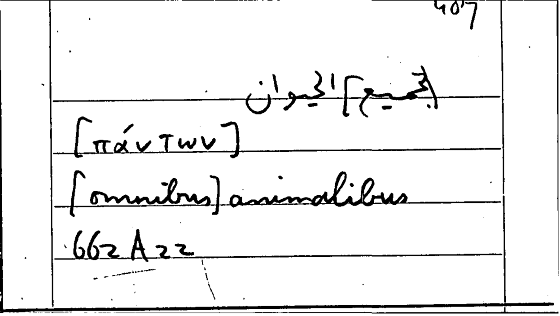 407
[جميع] الحيوان
[πάντων]
[omnibus] animalibus
662 A 22